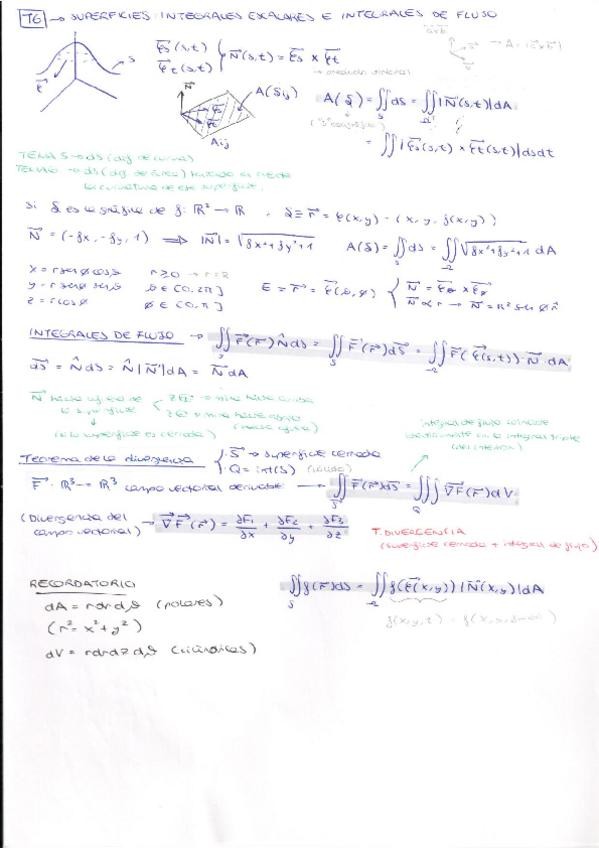 T6 → SUPERFICIES: INTEGRALES ESCALARES E INTEGRALES DE FLUJO
φ⃗s(s,t)
φ⃗t(s,t)
N⃗(s,t) = φ⃗s × φ⃗t
→ producto vectorial
a⃗×b⃗
→ A = |a⃗×b⃗|
S
N⃗
φ⃗s
φ⃗t
A(Sij)
Aij
A(S) = ∬_S dS = ∬_Ω |N⃗(s,t)| dA
= ∬ |φ⃗s(s,t) × φ⃗t(s,t)| ds dt
TEMA 5 → ds (dif. de curva)
TEMA 6 → dS (dif. de área) teniendo en cuenta
la curvatura de esa superficie.
Si S es la gráfica de f: ℝ² → ℝ, S ≡ r⃗ = φ(x,y) = (x, y, f(x,y))
N⃗ = (-fx, -fy, 1) ⟹ |N⃗| = √(fx²+fy²+1) A(S) = ∬_S dS = ∬_Ω √(fx²+fy²+1) dA
x = r senφ cosθ r ≥ 0 → r = R
y = r senφ senθ θ ∈ [0, 2π]
z = r cosφ φ ∈ [0, π]
E ≡ r⃗ = φ⃗(θ,φ)
N⃗ = φ⃗θ × φ⃗φ
N⃗ ∝ r → N⃗ = R² senφ r̂
INTEGRALES DE FLUJO → ∬_S F⃗(r⃗) N̂ dS = ∬_S F⃗(r⃗) dS⃗ = ∬_Ω F⃗(φ⃗(s,t))·N⃗ dA
dS⃗ = N̂ dS = N̂ |N⃗| dA = N⃗ dA
N⃗ hacia afuera de
la superficie
(si la superficie es cerrada)
mira hacia arriba
mira hacia abajo
(hacia afuera)
integral de flujo coincide
con la integral triple
(del interior)
Teorema de la divergencia
· S → superficie cerrada
· Q = int(S) (sólido)
F⃗: ℝ³ → ℝ³ campo vectorial derivable → ∬_S F⃗(r⃗) dS⃗ = ∭_Q ∇⃗F⃗(r⃗) dV
(Divergencia del
campo vectorial) → ∇⃗F⃗(r⃗) = ∂F1/∂x + ∂F2/∂y + ∂F3/∂z
T. DIVERGENCIA
(superficie cerrada + integral de flujo)
RECORDATORIO
dA = r dr dθ (polares)
(r² = x² + y²)
dV = r dr dz dθ (cilíndricas)
∬_S f(r⃗) dS = ∬_Ω f(φ⃗(x,y)) |N⃗(x,y)| dA